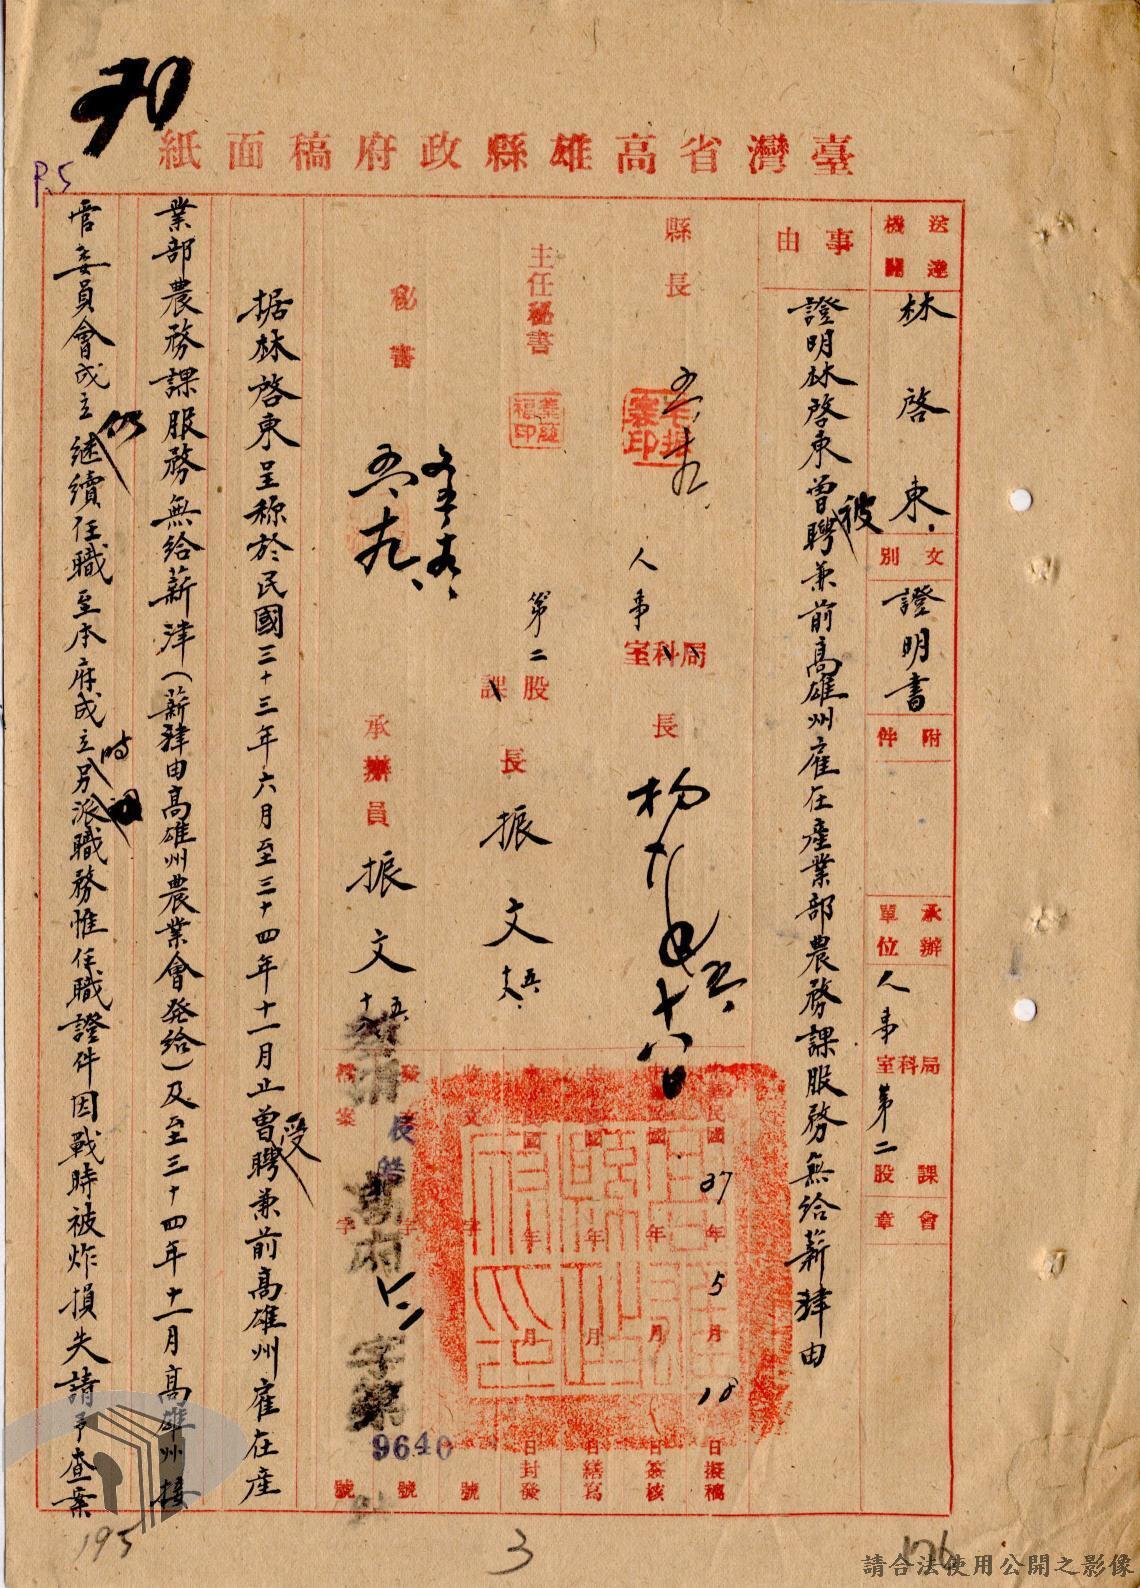 臺灣省高雄縣政府稿面紙
P.5
送達機關
林啓東
文別
證明書
附件
承辦單位
人事室科局第二股課
會章
事由
證明林啓東曾被聘兼前高雄州雇在產業部農務課服務無給薪津由
縣長
主任秘書
秘書
人事室科局長
第二股課長 振文
承辦員 振文
37年5月18日擬稿
年月日簽核
年月日繕寫
年月日封發
收文字號
發文字號
檔案字號
字第
9640
据林啓東呈称於民國三十三年六月至三十四年十一月止曾受聘兼前高雄州雇在産
業部農務課服務無給薪津(薪津由高雄州農業會発給)及至三十四年十一月高雄州接
管委員會成立仍継續任職至本府成立時另派職務惟任職證件因戰時被炸損失請予查案
195
3
176
請合法使用公開之影像